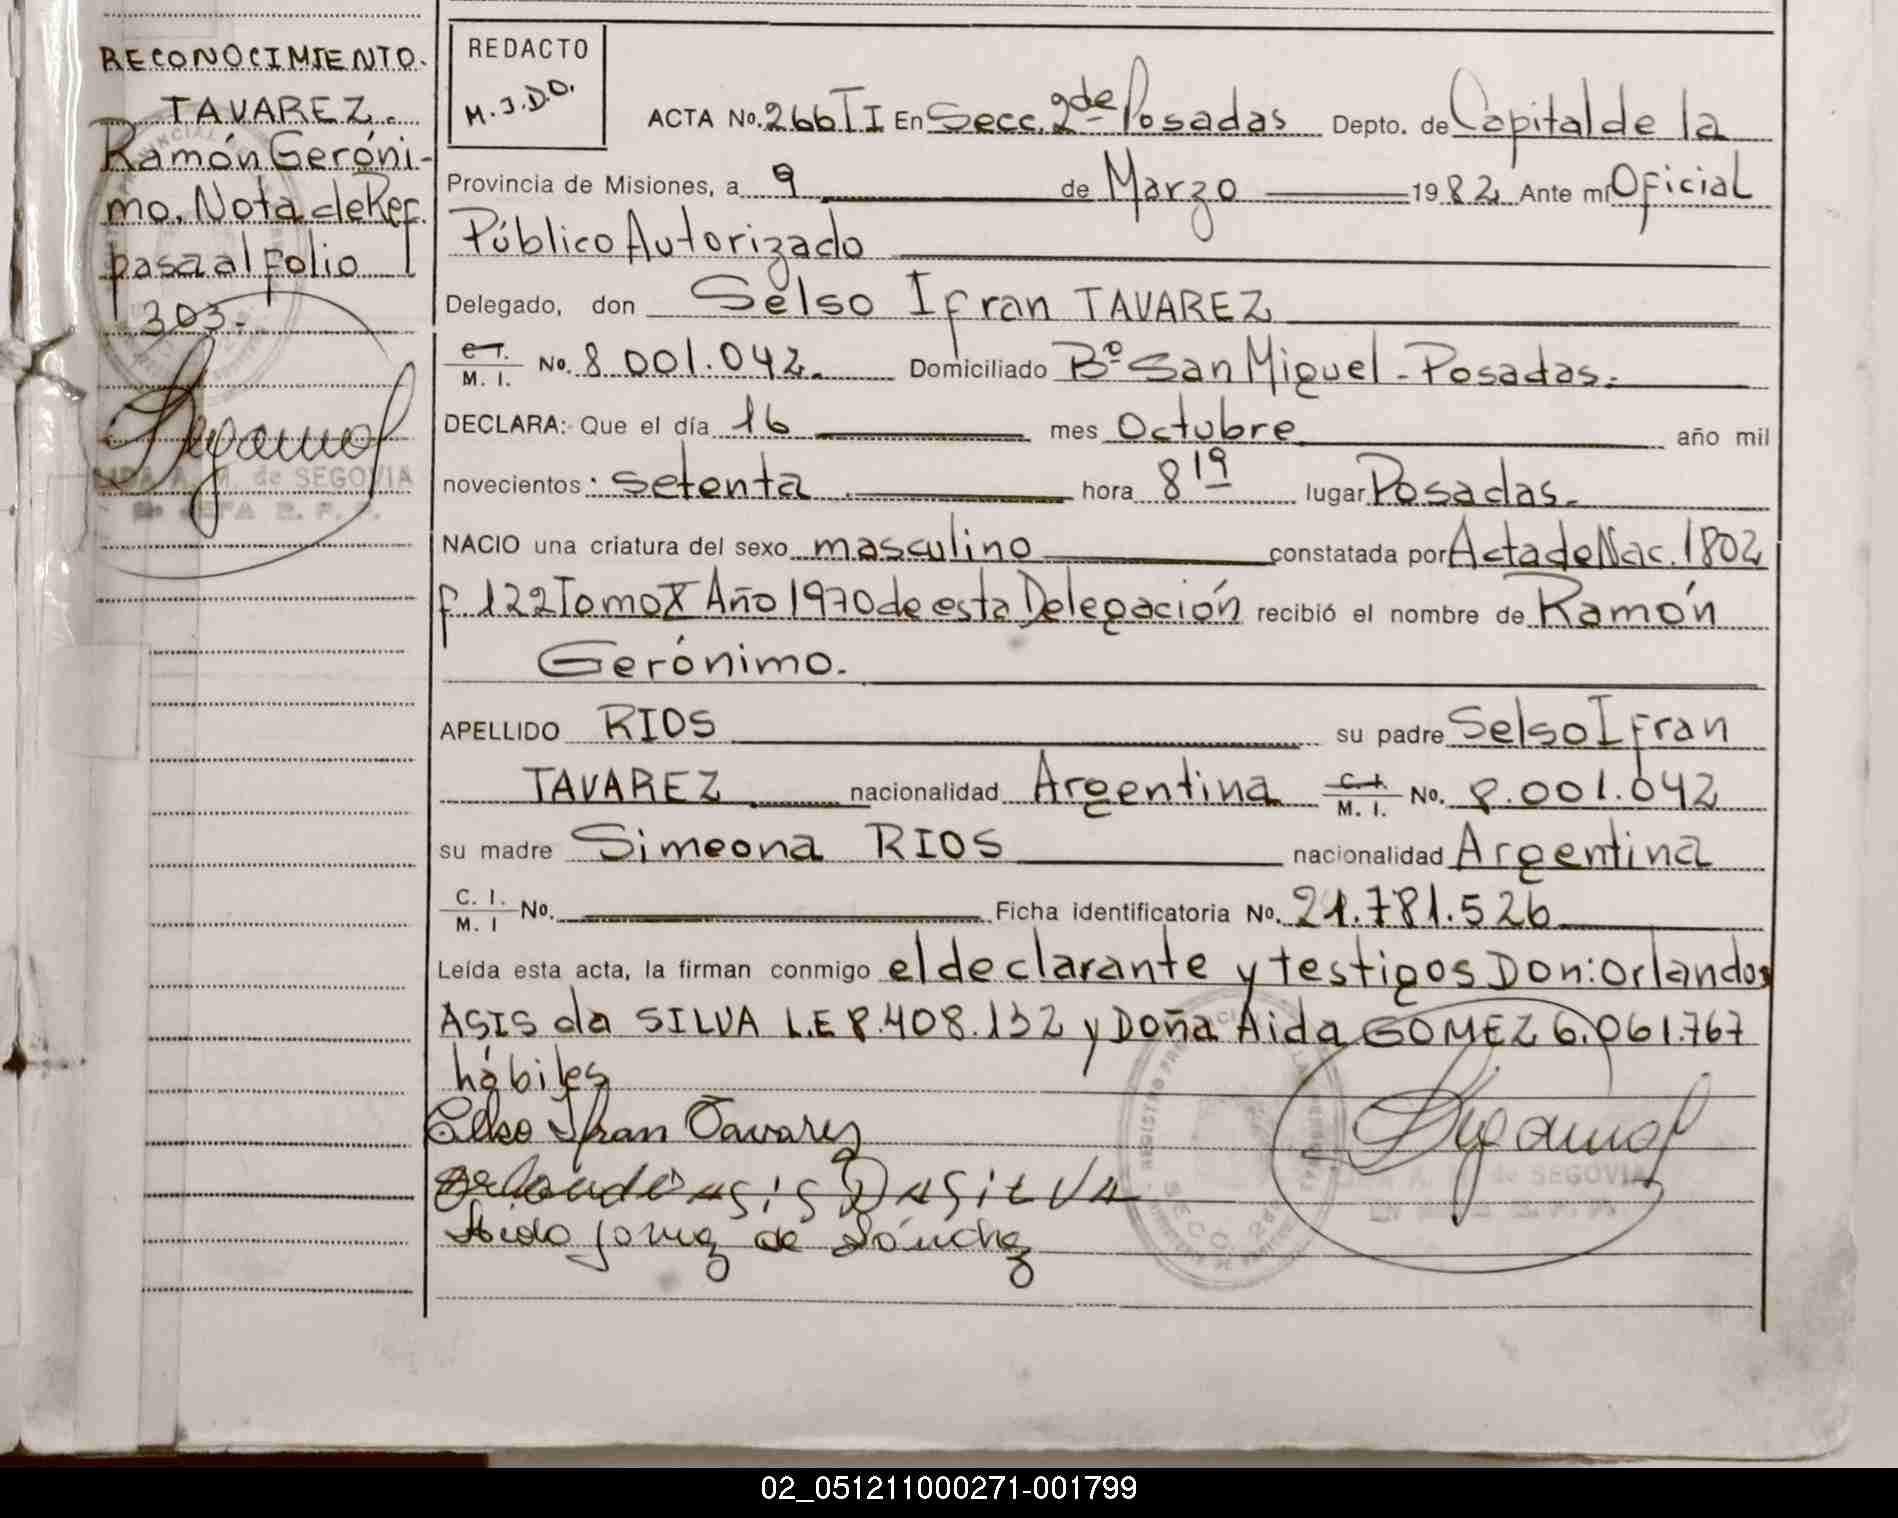 RECONOCIMIENTO.
TAVAREZ.
Ramón Geróni-
mo. Nota de Ref.
pasa al folio
303.-
LIDA A. M. de SEGOVIA
2º JEFA R. P. P.
REDACTO
M.J.D.O.
ACTA No. 266 TI En Secc. 2da Posadas Depto. de Capital de la
Provincia de Misiones, a 9 de Marzo 1982 Ante mí Oficial
Público Autorizado
Delegado, don Selso Ifran TAVAREZ
C. I. / M. I. No. 8.001.042. Domiciliado Bº San Miguel - Posadas.
DECLARA: Que el día 16 mes Octubre año mil
novecientos: setenta hora 8 19 lugar Posadas.
NACIO una criatura del sexo masculino constatada por Acta de Nac. 1802
f 122 Tomo X Año 1970 de esta Delegación recibió el nombre de Ramón
Gerónimo.
APELLIDO RIOS su padre Selso Ifran
TAVAREZ nacionalidad Argentina C. I. / M. I. No. 8.001.042
su madre Simeona RIOS nacionalidad Argentina
C. I. / M. I No. Ficha identificatoria No. 21.781.526
Leída esta acta, la firman conmigo el declarante y testigos Don: Orlando
ASIS da SILVA L.E 8.408.132 y Doña Aida GOMEZ 6.061.767
hábiles
Celso Ifran Tavarez
Orlando Asis Da Silva
Aida Gomez de Sánchez
de SEGOVIA
02_051211000271-001799